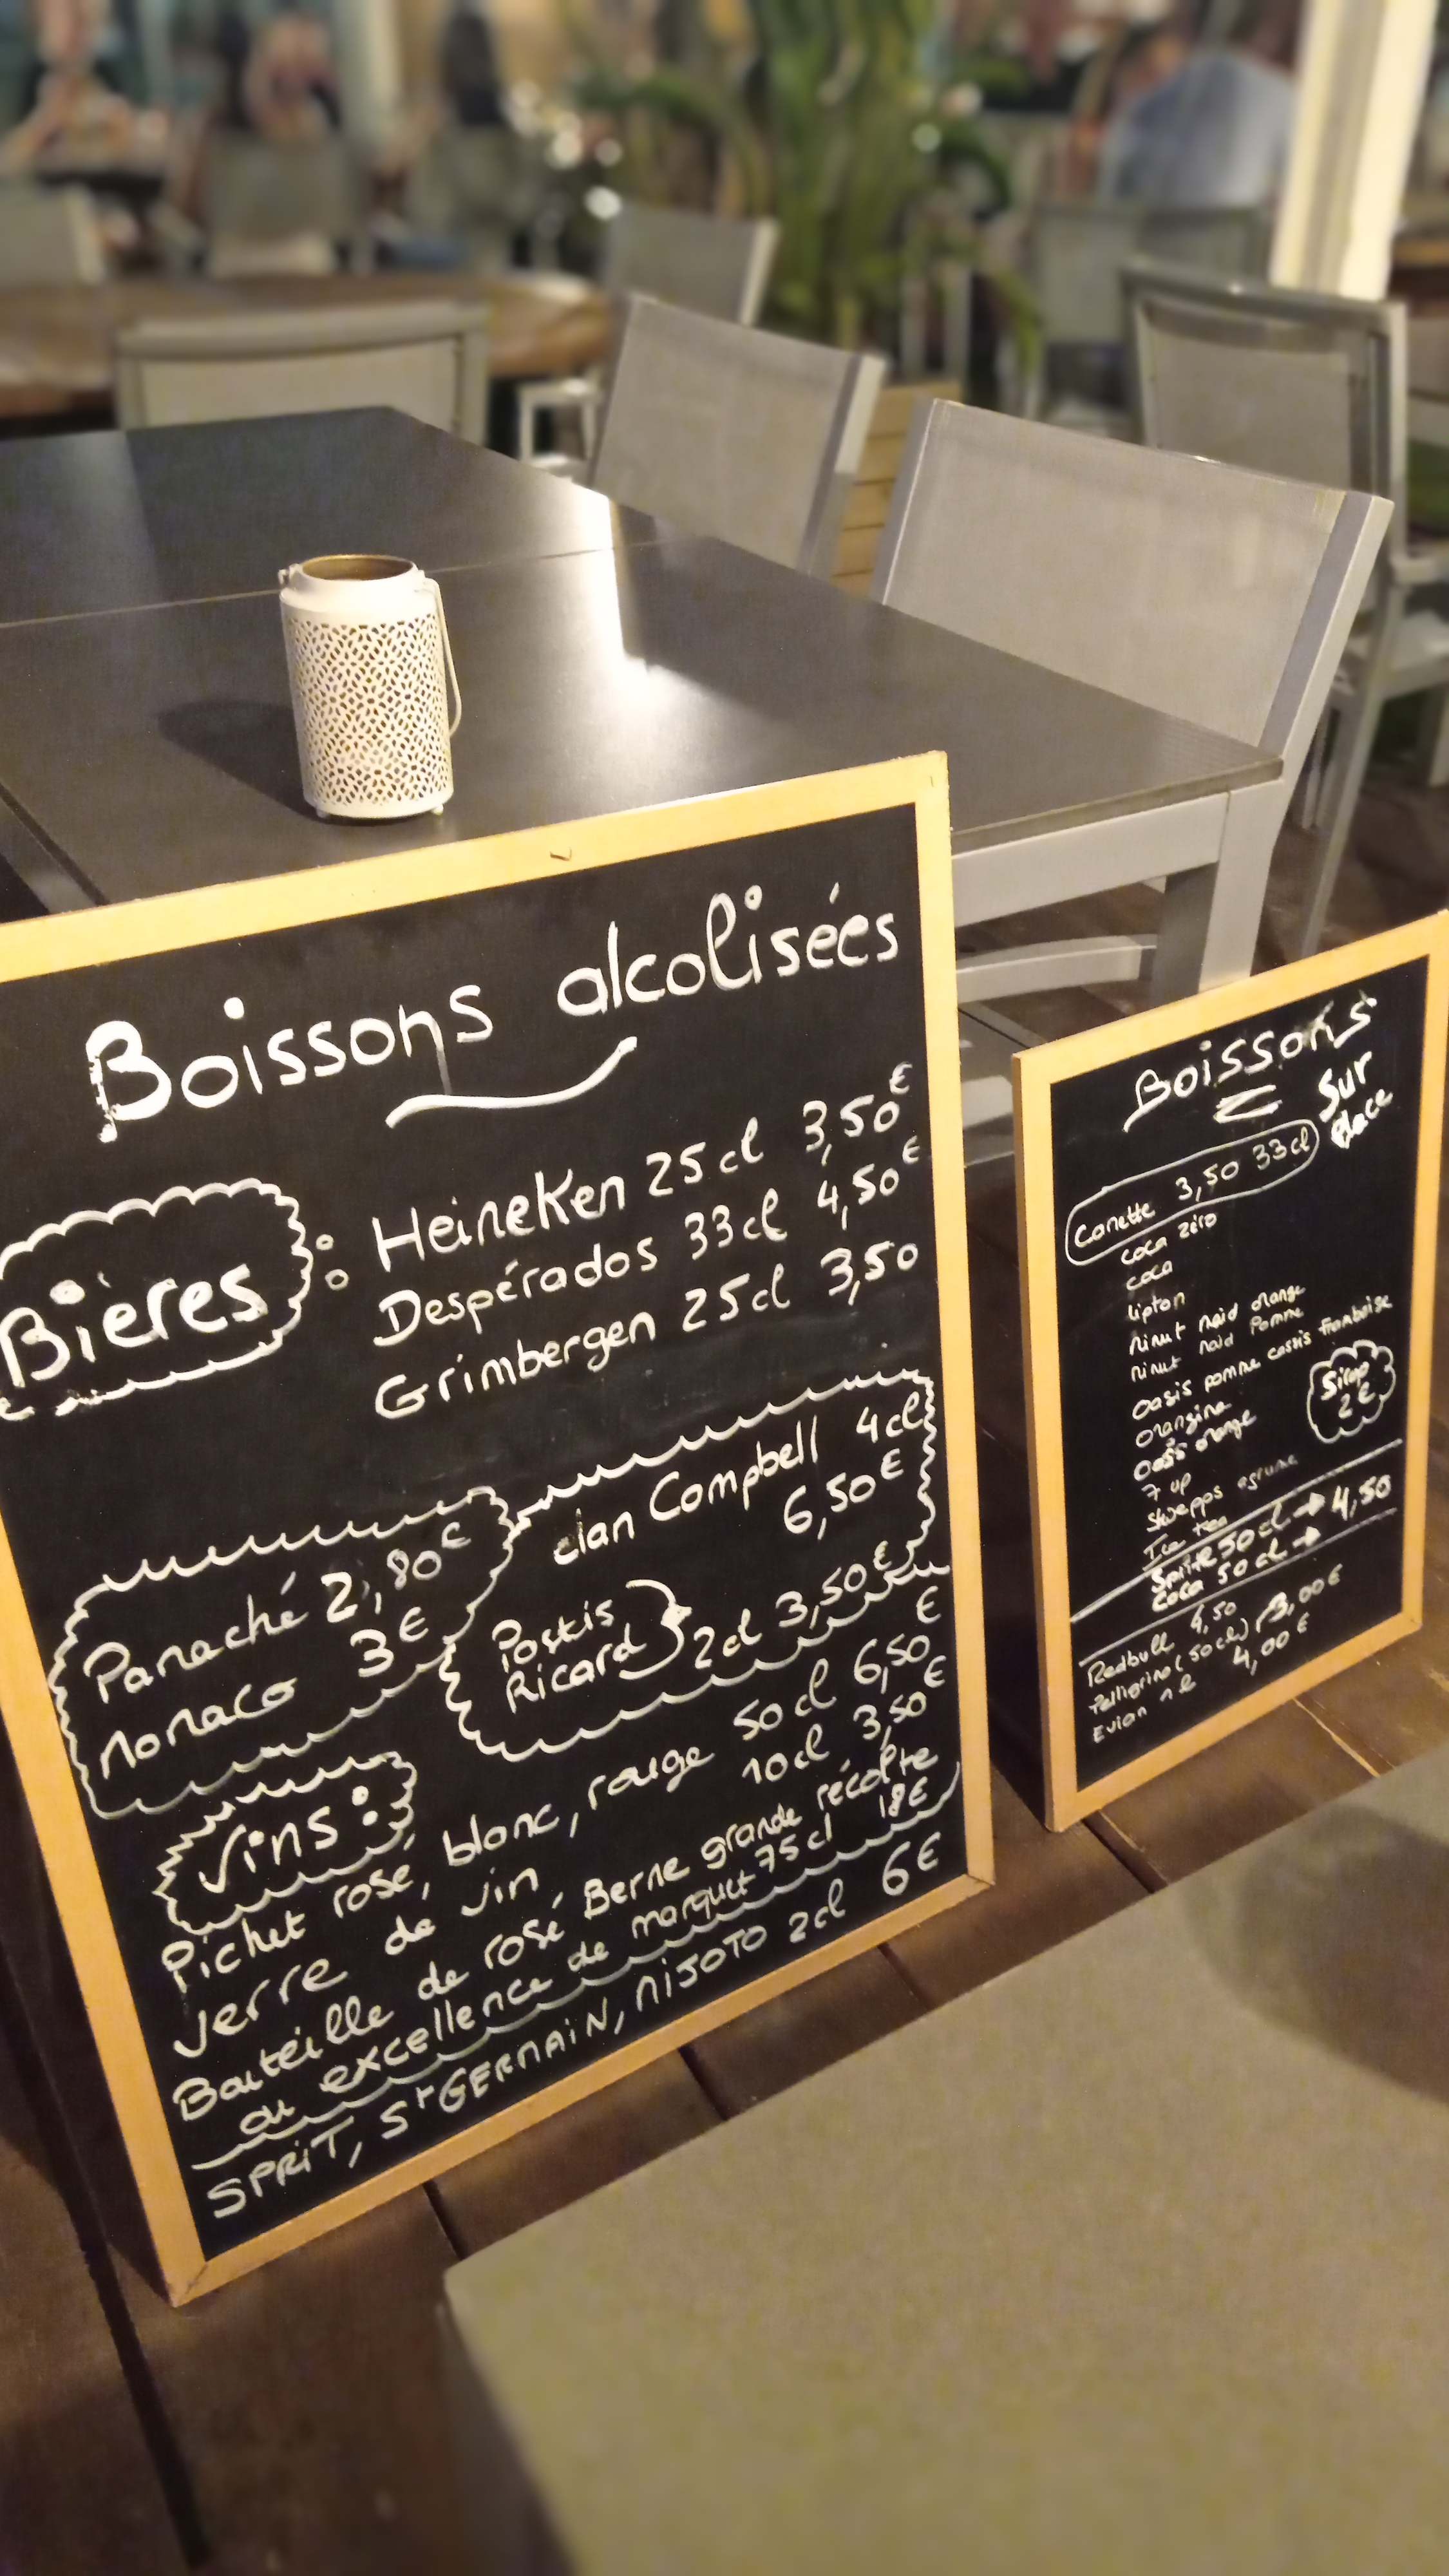 Boissons alcolisées
Bières :
Heineken 25cl 3,50€
Despérados 33cl 4,50€
Grimbergen 25cl 3,50
Panaché 2,80€
Monaco 3€
clan Campbell 4cl
6,50€
Pastis
Ricard
2cl 3,50€
Vins :
Pichet rosé, blanc, rouge 50cl 6,50€
Verre de vin 10cl 3,50€
Bouteille de rosé Berne grande récolte
ou excellence de marquet 75cl 18€
SPRiT, St GERMAiN, MiJOTO 2cl 6€
Boissons
Sur
place
Canette 3,50 33cl
coca zéro
coca
lipton
Minut Maid orange
Minut Maid Pomme
Oasis pomme cassis Framboise
Orangina
Oasis orange
7 up
Shwepps agrume
Ice tea
Sirop
2€
Sprite 50cl → 4,50
Coca 50cl →
Redbull 4,50
Pelligrino (50cl) 3,00€
Evian 1l 4,00€